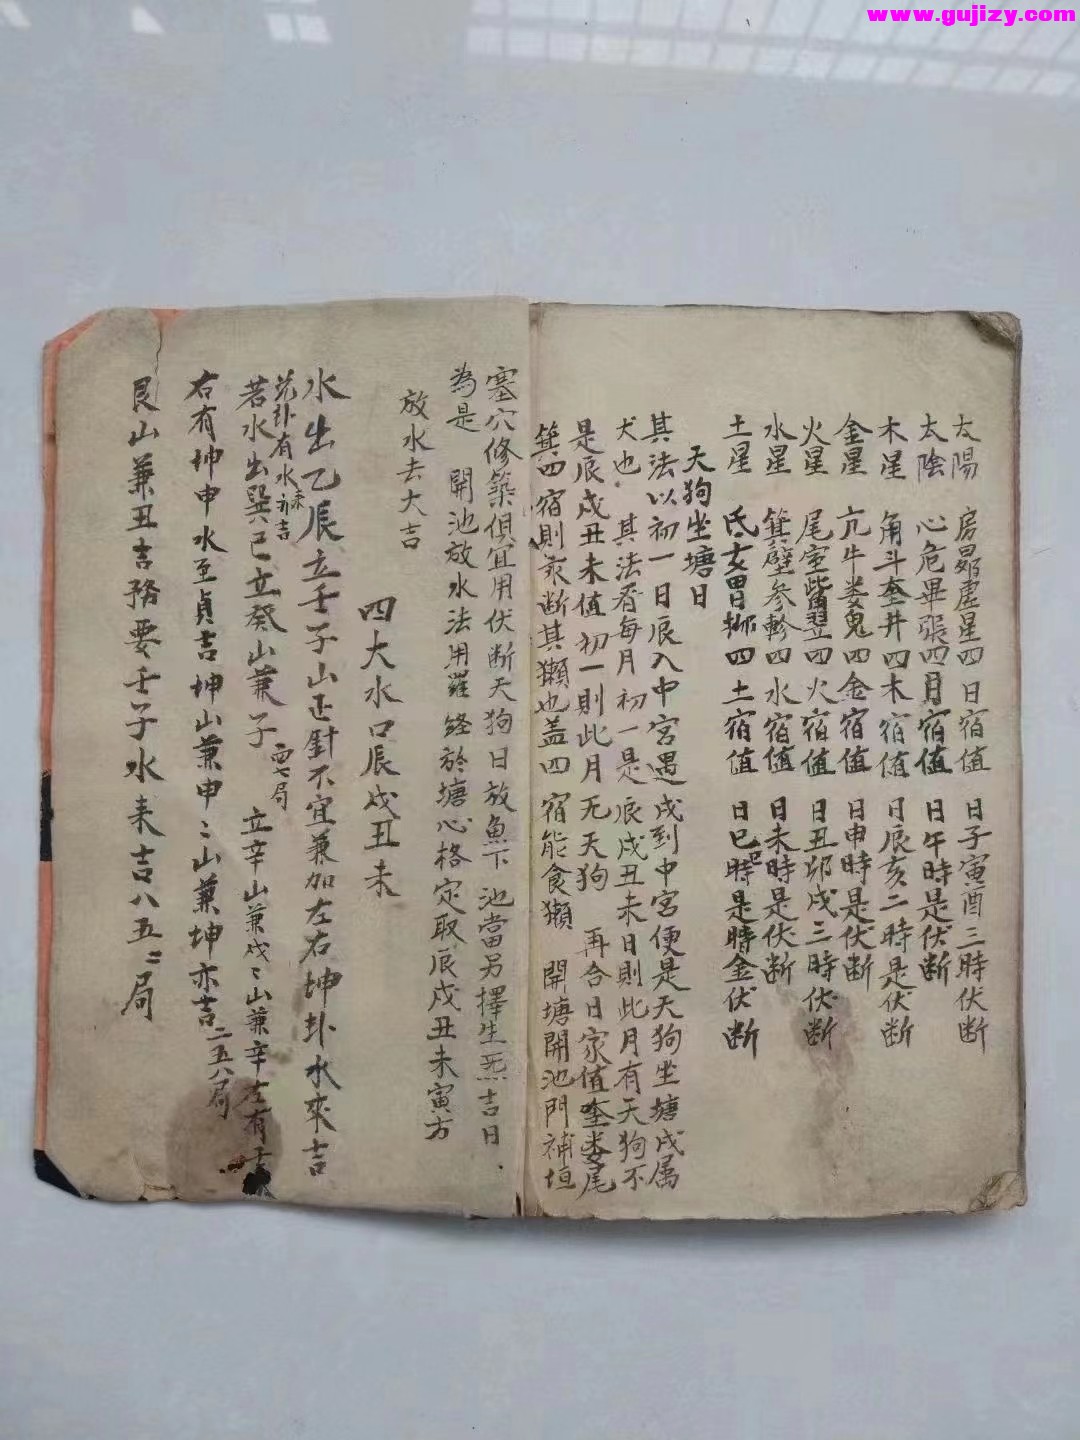 www.gujizy.com
太陽 房昴虛星四日宿值 日子寅酉三時伏断
太陰 心危畢張四月宿值 日午時是伏断
木星 角斗奎井四木宿值 日辰亥二時是伏断
金星 亢牛娄鬼四金宿值 日申時是伏断
火星 尾室觜翌四火宿值 日丑卯戌三時伏断
水星 箕壁参軫四水宿值 日未時是伏断
土星 氐女胃柳四土宿值 日巳時是時金伏断
天狗坐塘日
其法以初一日辰入中宮遇戌到中宮便是天狗坐塘戌属
犬也 其法看每月初一是辰戌丑未日則此月有天狗不
是辰戌丑未值初一則此月无天狗 再合日家值奎娄尾
箕四宿則断其獺也盖四宿能食獺 開塘開池門補垣
塞穴修築俱宜用伏断天狗日放魚下池當另擇生炁吉日
為是 開池放水法用羅経於塘心格定取辰戌丑未寅方
放水去大吉
四大水口辰戌丑未
水出乙辰立壬子山正針不宜兼加左右坤卦水來吉
兊卦有水來亦吉
若水出巽巳立癸山兼子 四七局 立辛山兼戌〻山兼辛左有
右有坤申水至貞吉坤山兼申〻山兼坤亦吉二五八局
艮山兼丑吉務要壬子水来吉八五二局